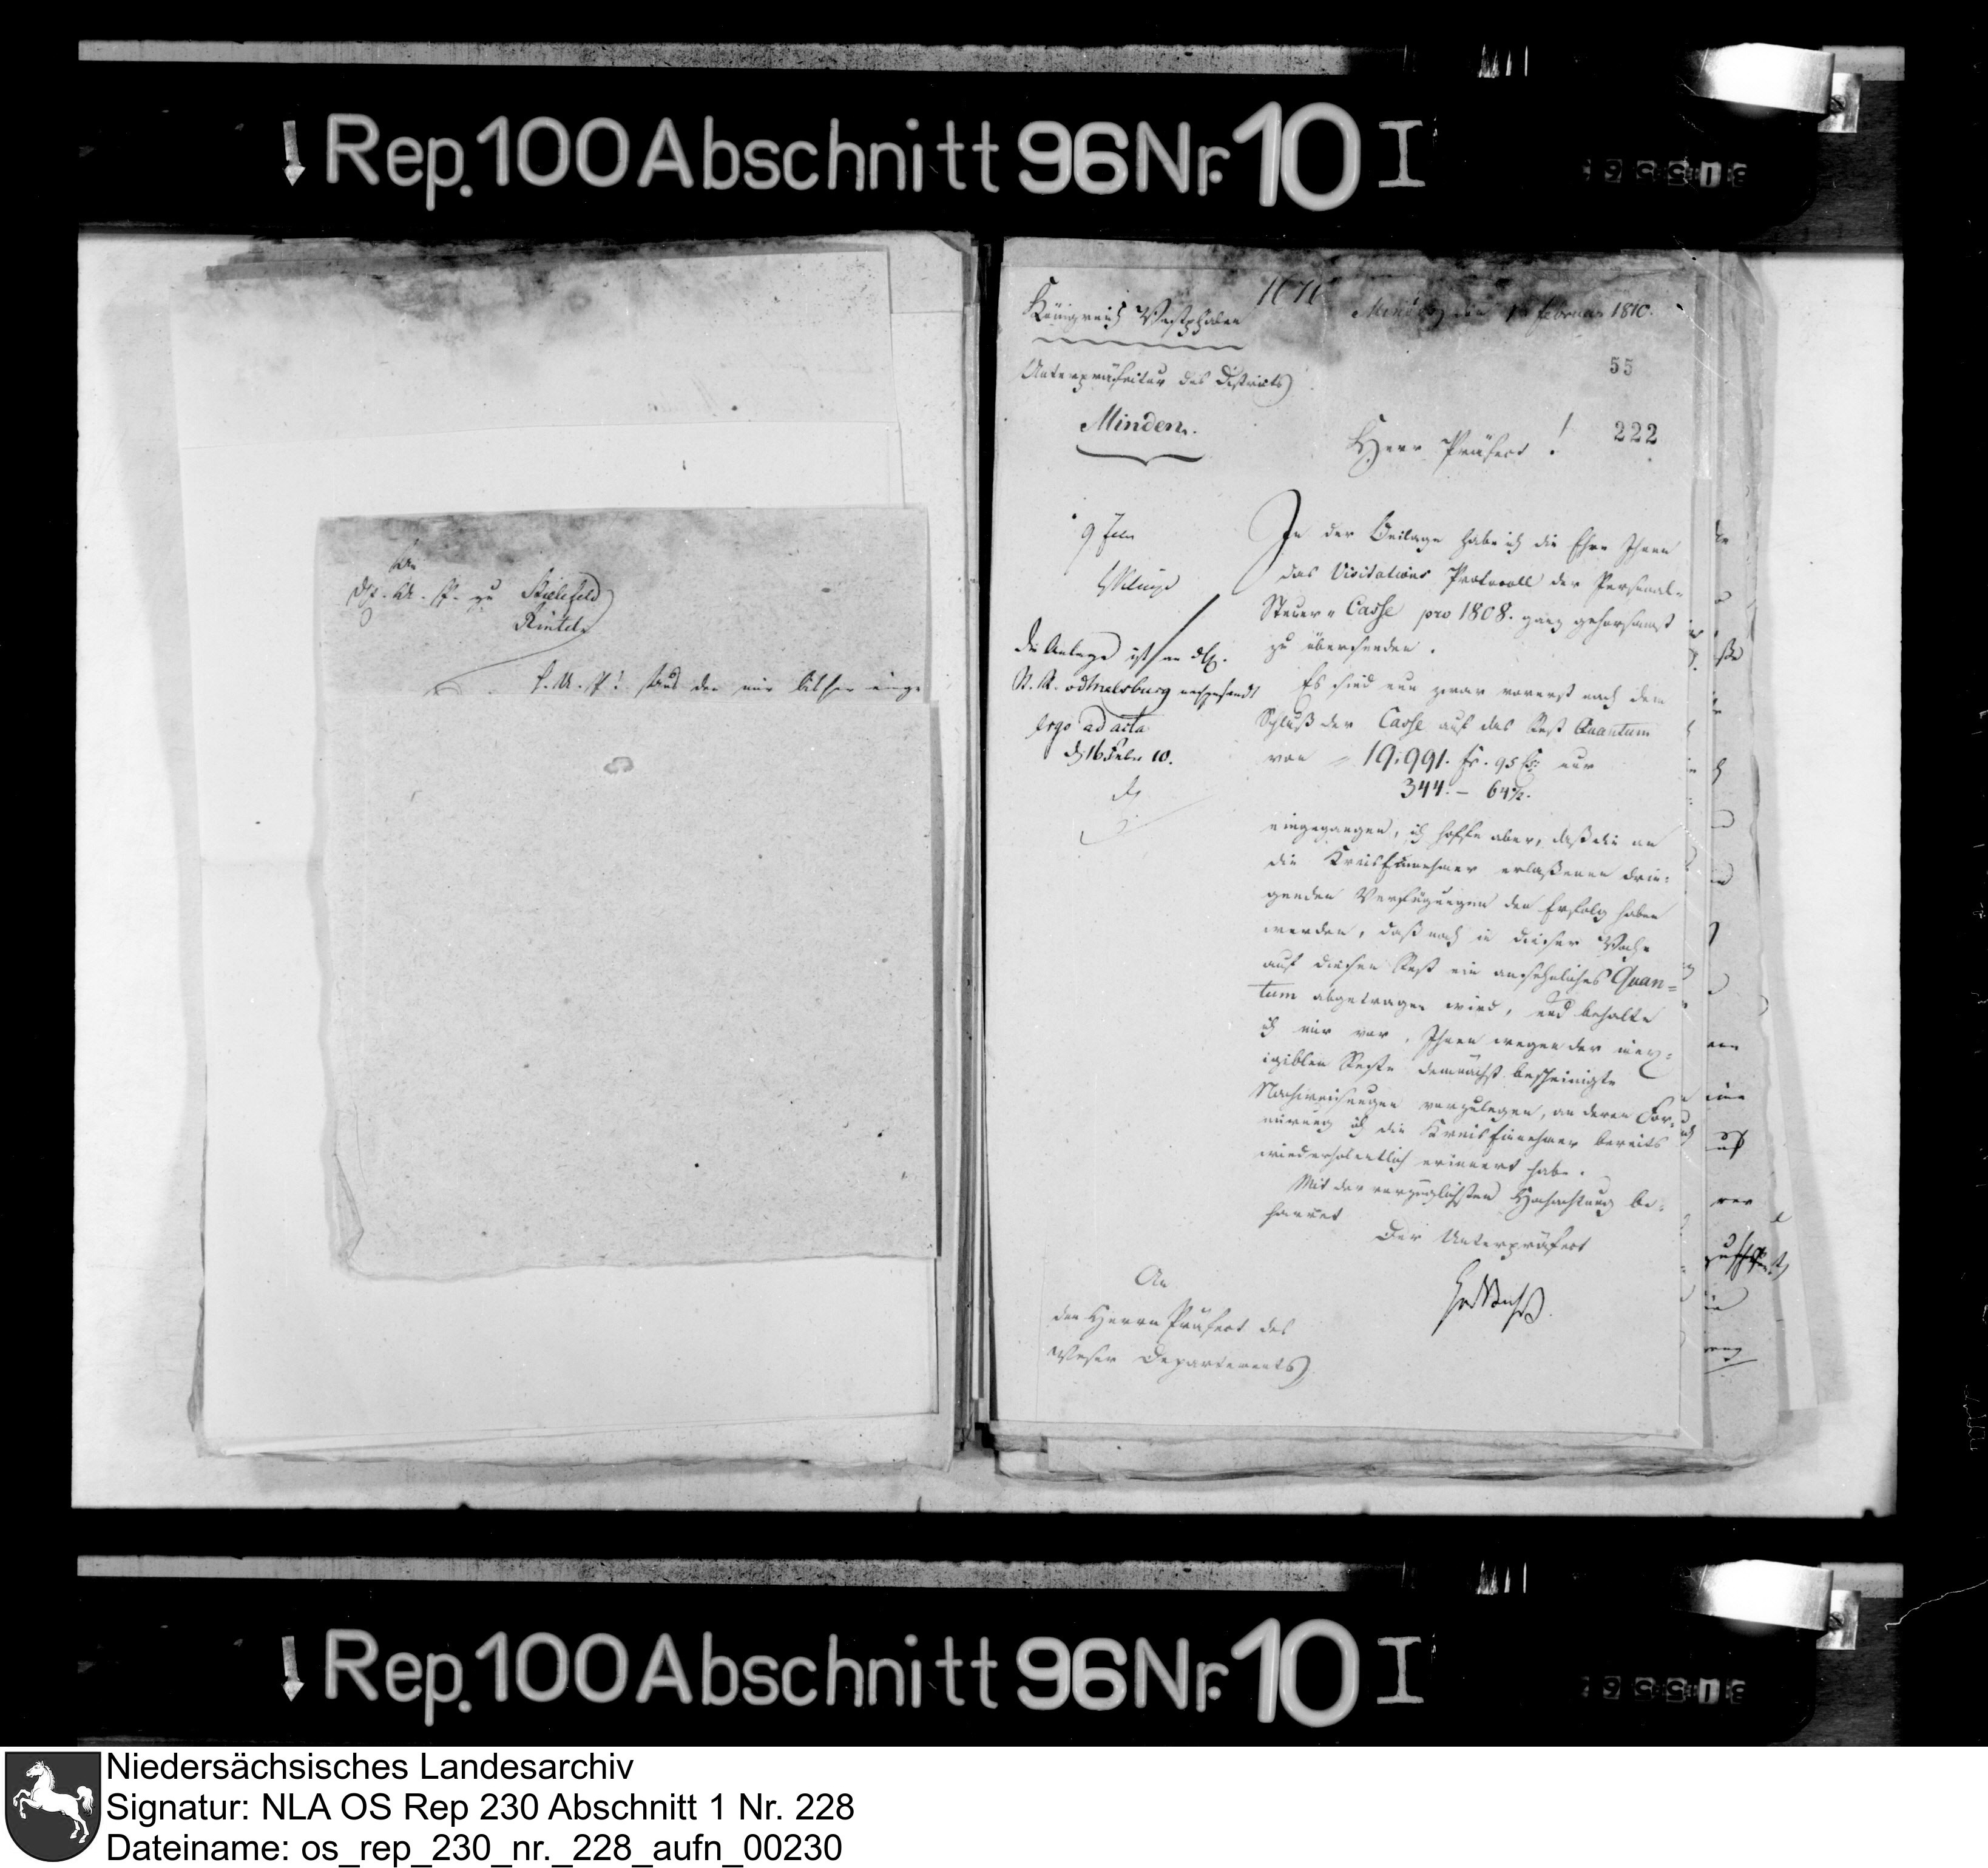 Rep. 100 Abschnitt 96 Nr. 10 I
An
zu Bielefeld
Rinteln
aus den mir bisher einge
Königreich Westphalen
Minden, den Februar 1810.
Unterpräfectur des Districts
55
Minden.
222
Herr Präfect!
In der Beilage habe ich die Ehre Ihnen
das Visitations Protocoll der Personal-
Steuer-Casse pro 1808. ganz gehorsamst
zu übersenden.
Die Anlage ist an
v d Malsburg
ergo ad acta
d 16 Febr 10.
Es sind nun zwar vorerst nach dem
Schluß der Casse auf das Rest Quantum
von 19,991. fr. 95 Cs. nur
344. — 64½.
eingegangen, ich hoffe aber, daß die an
die KreisEinnehmer erlaßenen drin-
genden Verfügungen den Erfolg haben
werden, daß noch in dieser Woche
auf diesen Rest ein ansehnliches Quan=
tum abgetragen wird, und behalte
ich mir vor, Ihnen wegen der inex-
igiblen Reste demnächst bescheinigte
Nachweisungen vorzulegen, an deren For-
mirung ich die KreisEinnehmer bereits
wiederholentlich erinnert habe.
Mit der vorzüglichsten Hochachtung be-
harret
Der Unterpräfect
An
den Herrn Präfect des
Weser Departements
Rep. 100 Abschnitt 96 Nr. 10 I
Niedersächsisches Landesarchiv
Signatur: NLA OS Rep 230 Abschnitt 1 Nr. 228
Dateiname: os_rep_230_nr._228_aufn_00230